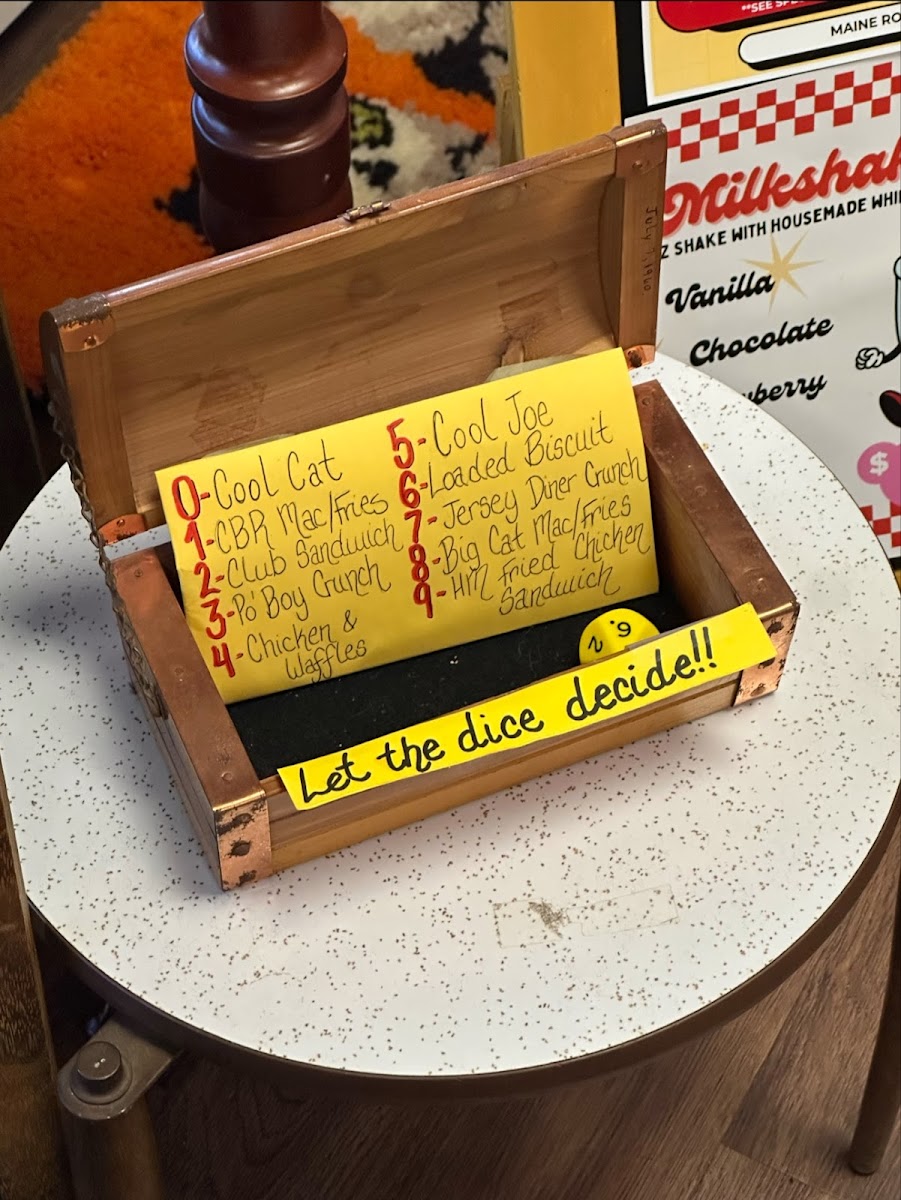 **SEE
MAINE RO
Milkshak
Z SHAKE WITH HOUSEMADE WHI
Vanilla
Chocolate
berry
$
July 7, 1960
0-Cool Cat
1-CBR Mac/Fries
2-Club Sandwich
3-Po'Boy Crunch
4-Chicken &
Waffles
5-Cool Joe
6-Loaded Biscuit
7-Jersey Diner Crunch
8-Big Cat Mac/Fries
9-HM Fried Chicken
Sandwich
2 6.
Let the dice decide!!